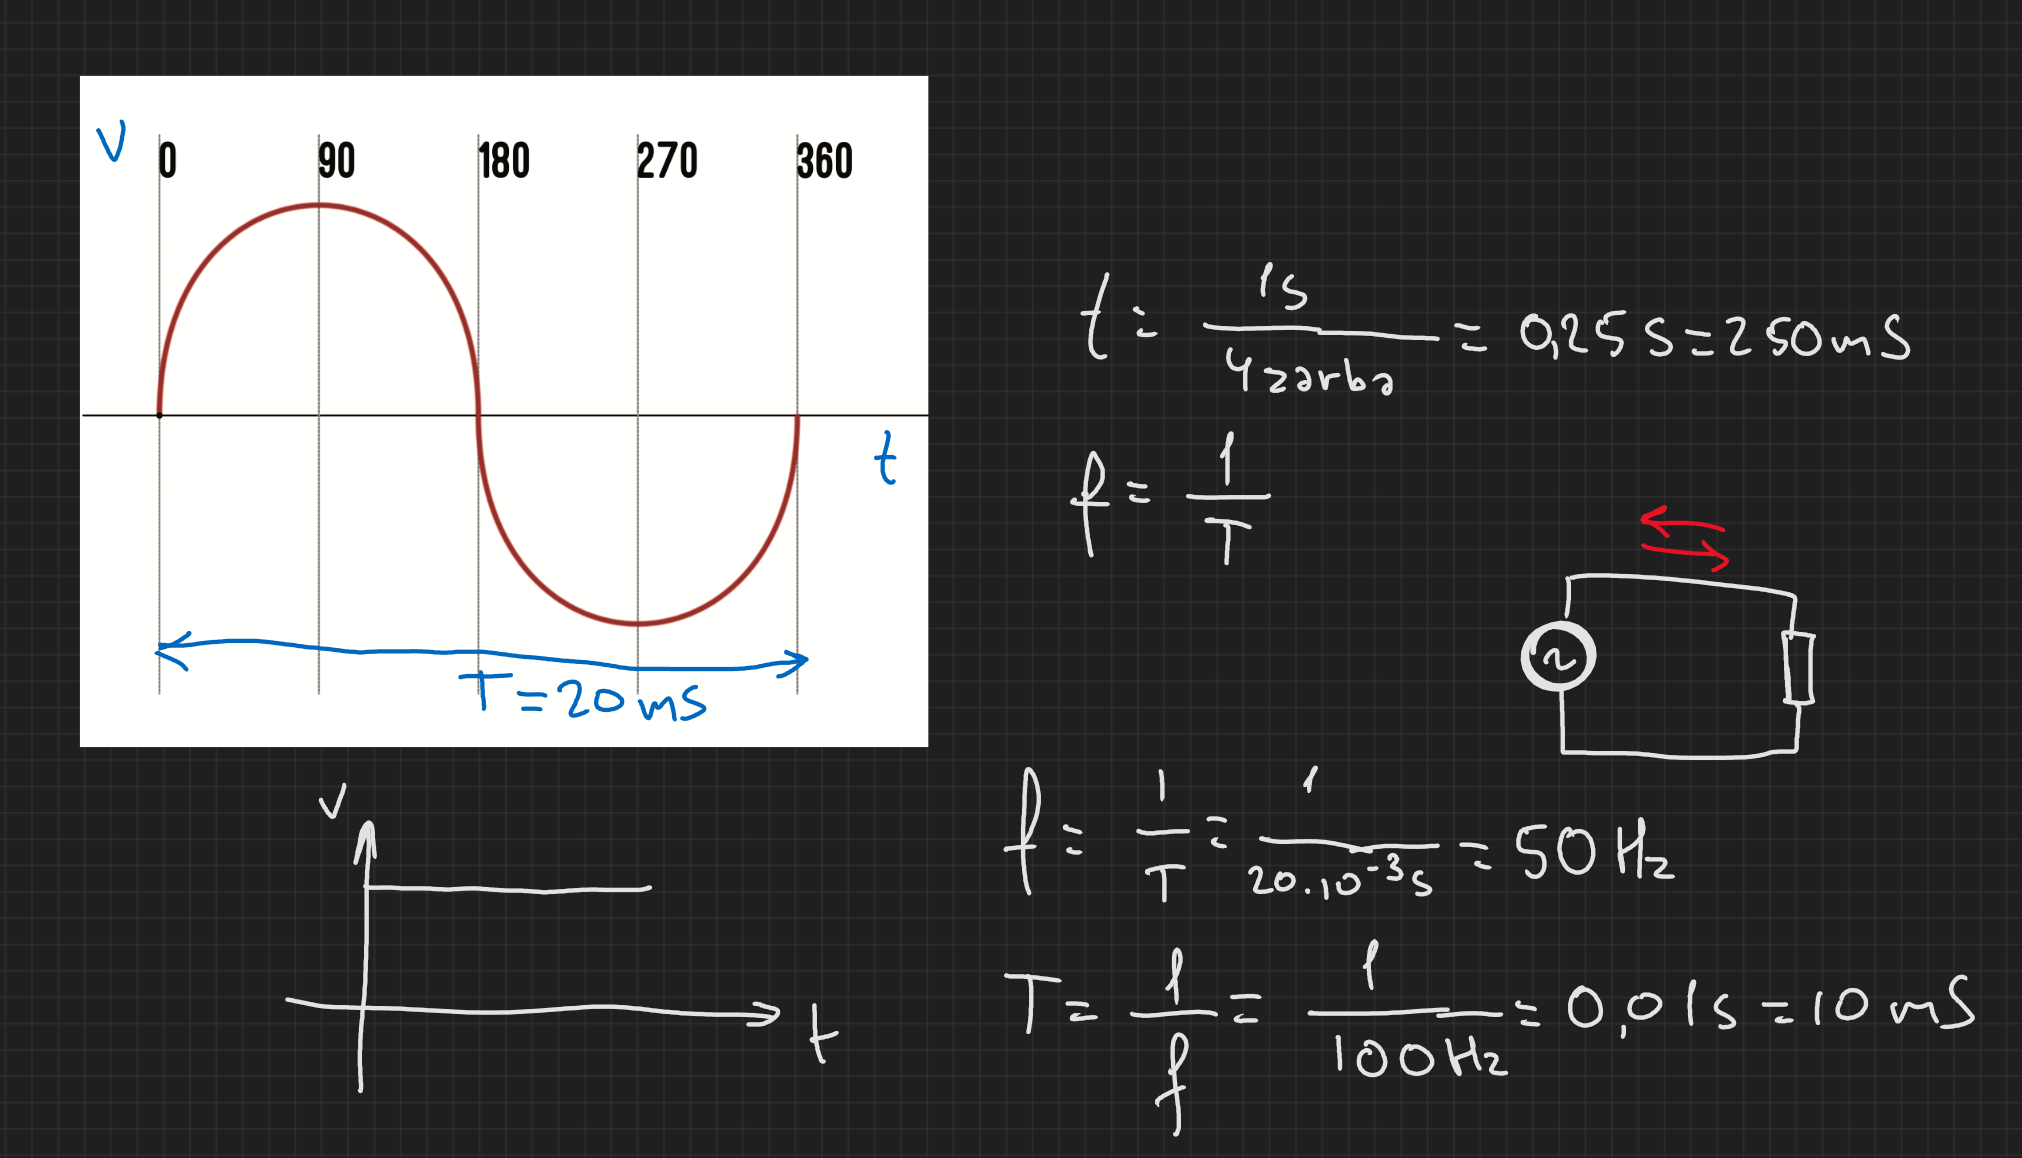 V 0 90 180 270 360
t
T = 20 ms
t = 1s / 4 zərbə = 0,25 s = 250 ms
f = 1 / T
~
f = 1 / T = 1 / 20.10⁻³ s = 50 Hz
T = 1 / f = 1 / 100 Hz = 0,01 s = 10 ms
V
t